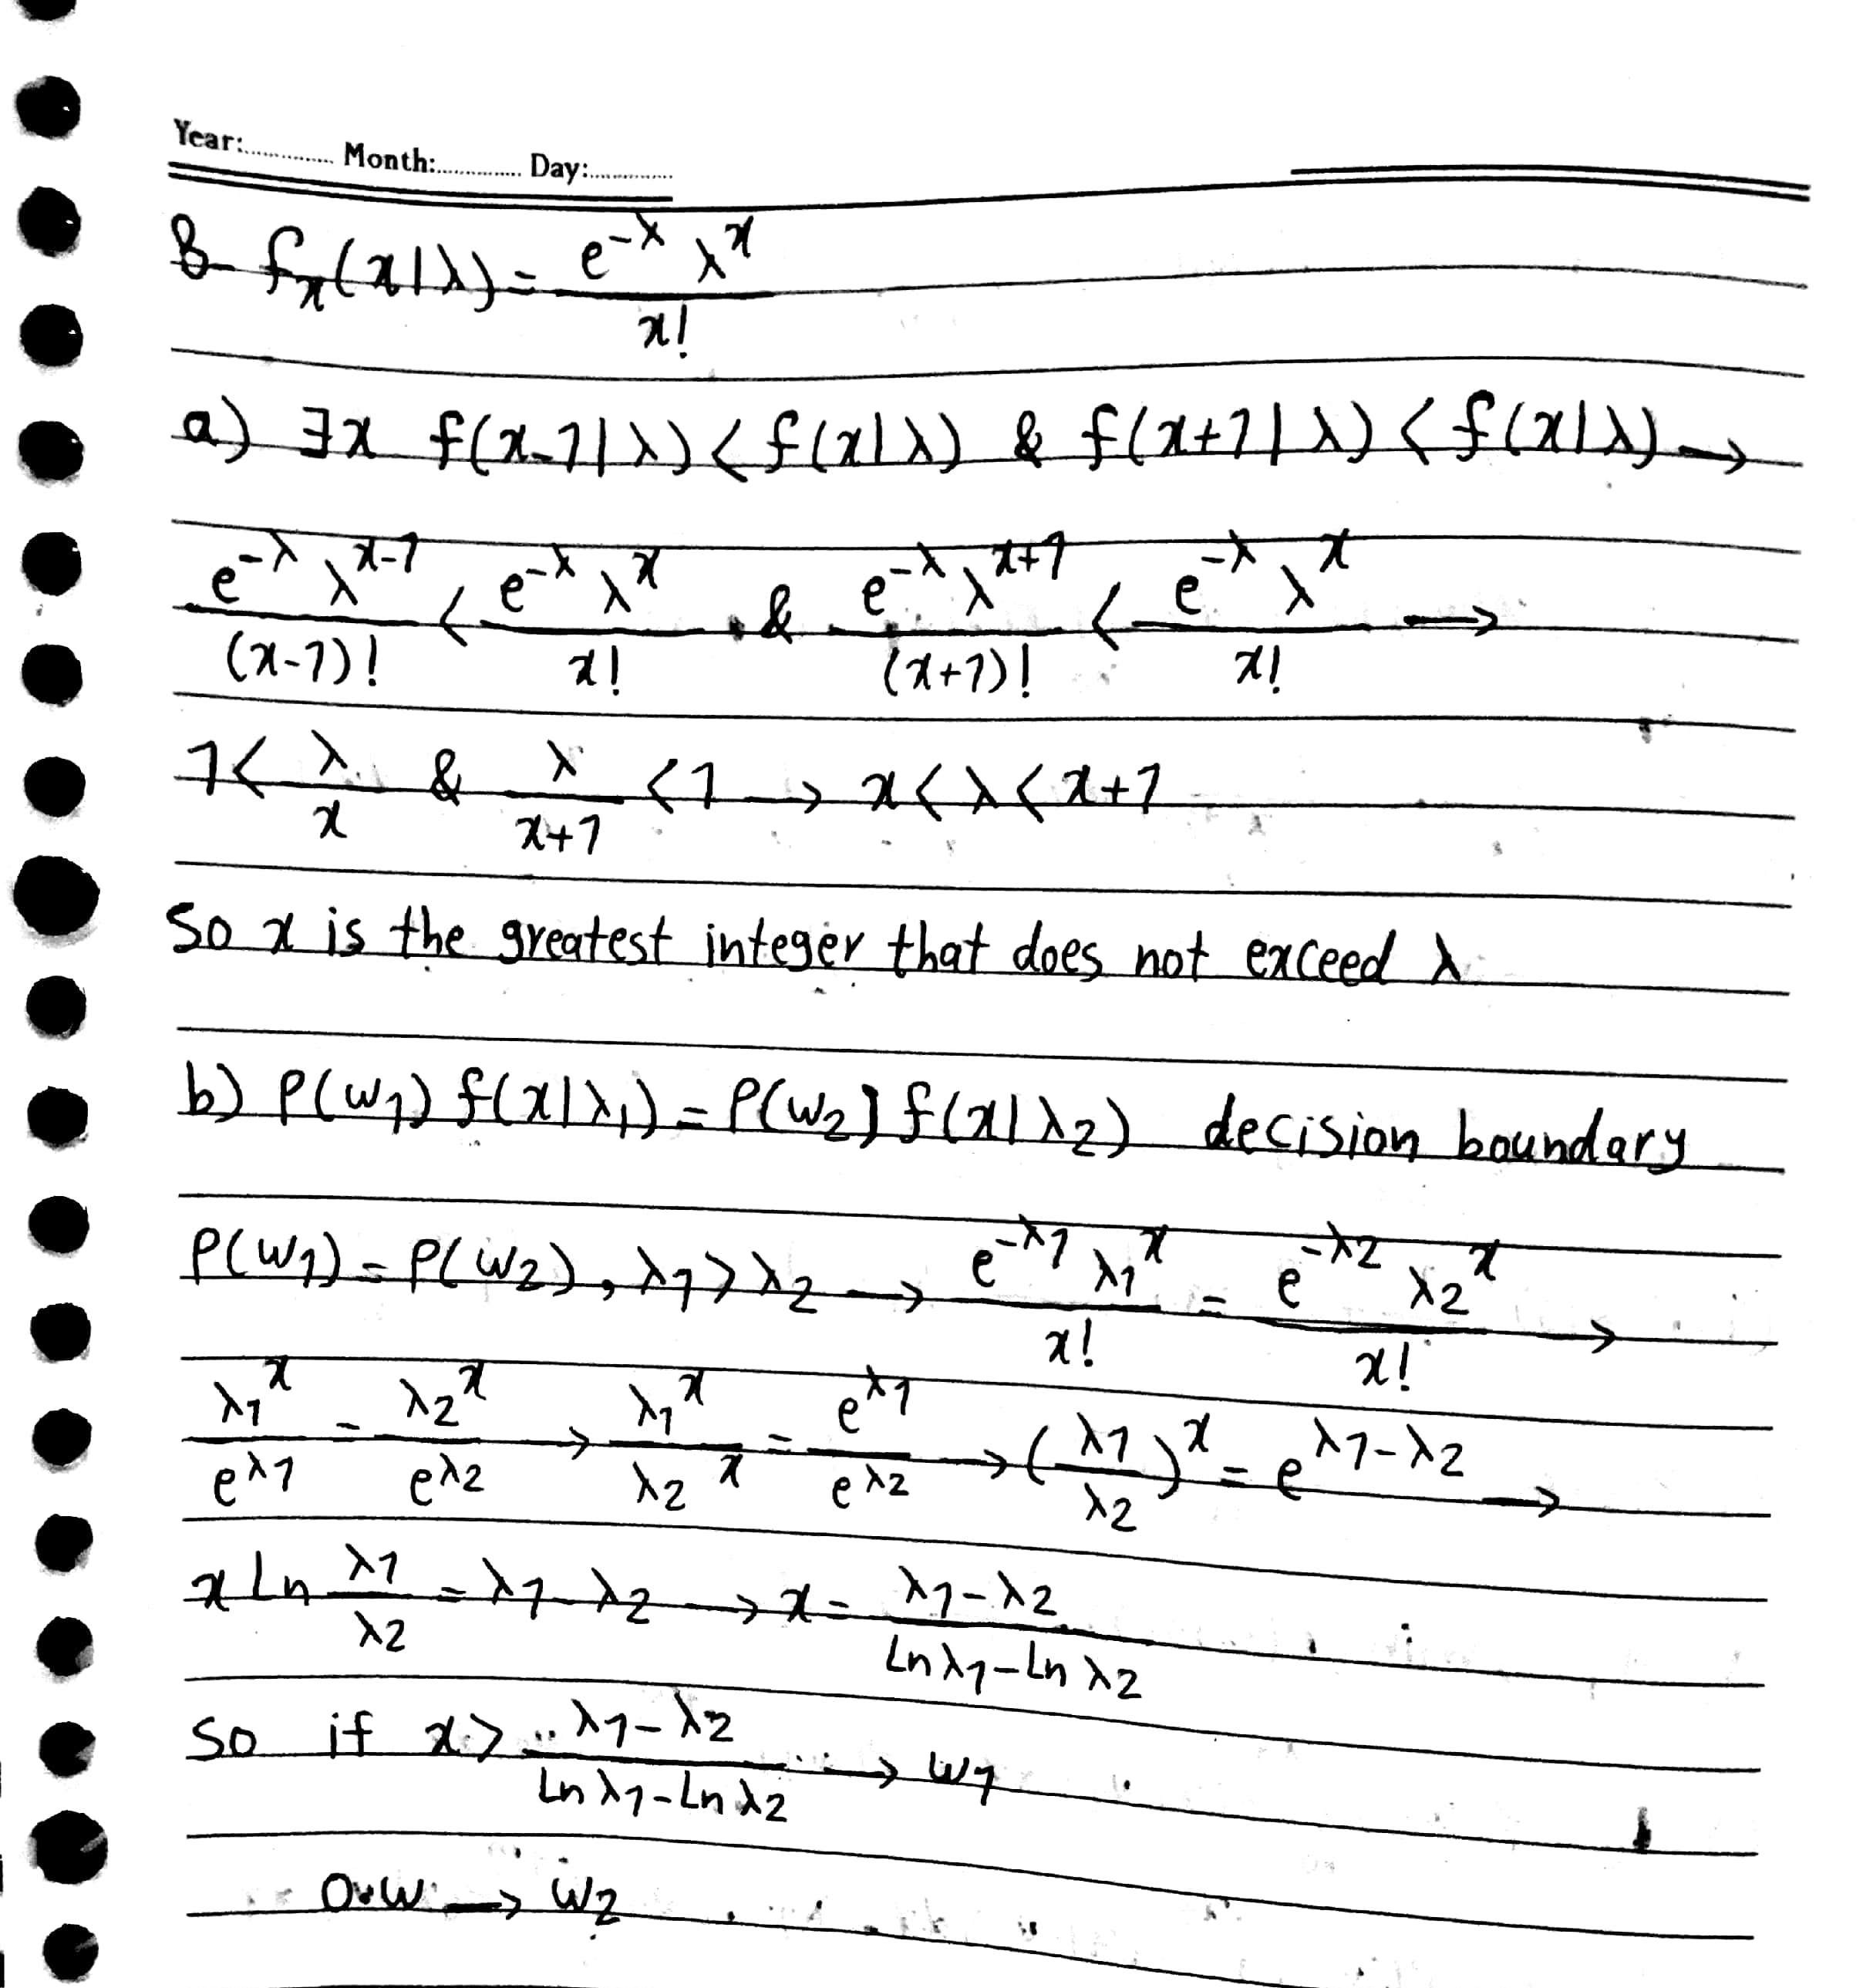 Year:............ Month:............ Day:............
8 fₓ(x|λ) = e^-λ λ^x / x!
a) ∃x f(x-1|λ) < f(x|λ) & f(x+1|λ) < f(x|λ) →
e^-λ λ^x-1 / (x-1)! < e^-λ λ^x / x! & e^-λ λ^x+1 / (x+1)! < e^-λ λ^x / x! →
1 < λ / x & λ / x+1 < 1 → x < λ < x+1
so x is the greatest integer that does not exceed λ
b) P(w1) f(x|λ1) = P(w2) f(x|λ2) decision boundary
P(w1) = P(w2), λ1 > λ2 → e^-λ1 λ1^x / x! = e^-λ2 λ2^x / x! →
λ1^x / e^λ1 = λ2^x / e^λ2 → λ1^x / λ2^x = e^λ1 / e^λ2 → (λ1 / λ2)^x = e^λ1-λ2 →
x Ln λ1 / λ2 = λ1 - λ2 → x = λ1 - λ2 / Lnλ1 - Ln λ2
so if x > λ1 - λ2 / Ln λ1 - Ln λ2 → w1
O.W → w2